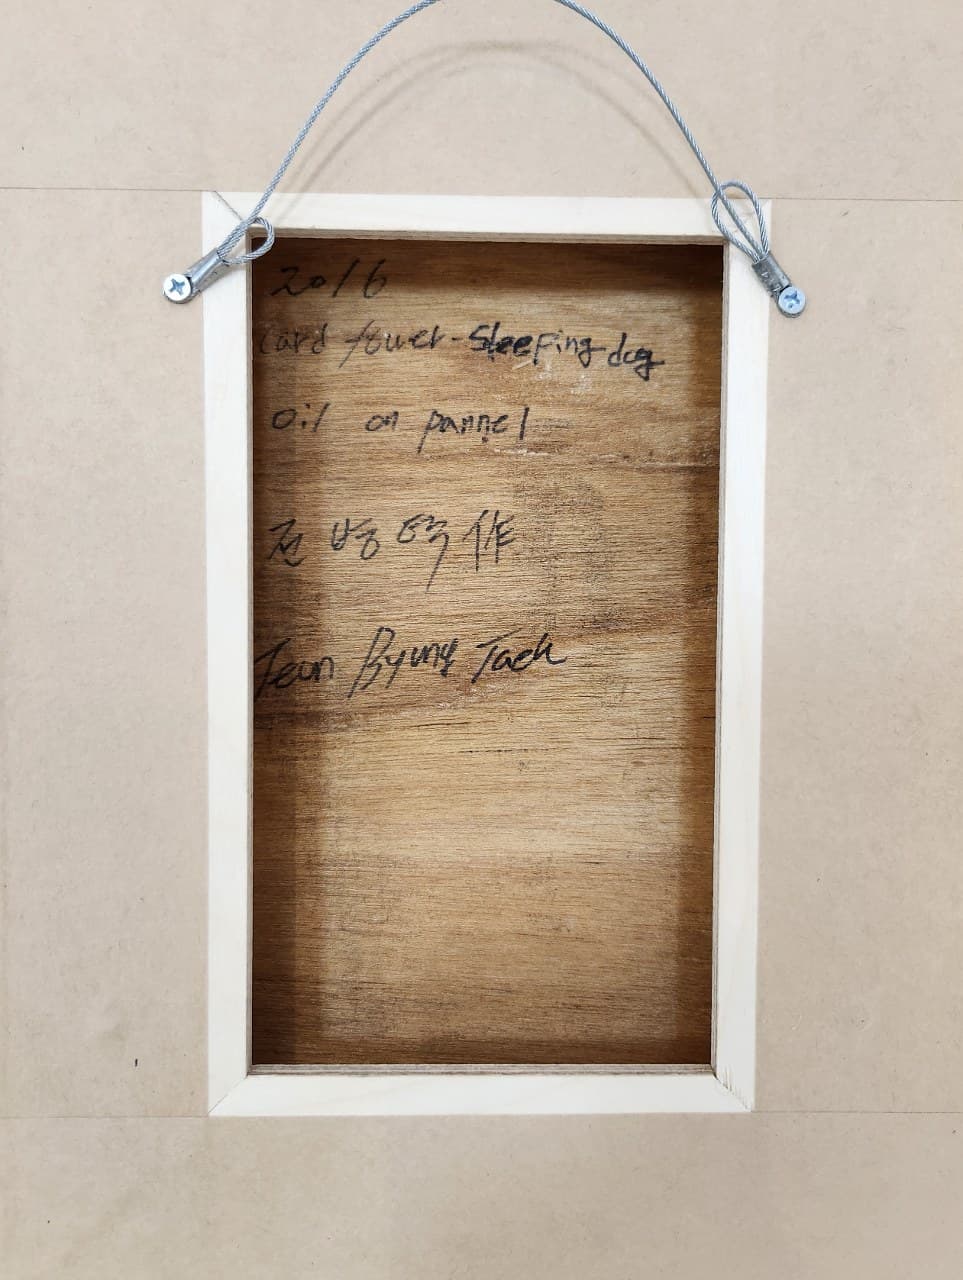 2016
Card tower-Sleeping dog
oil on pannel
전병택 作
Jeon Byung Taek